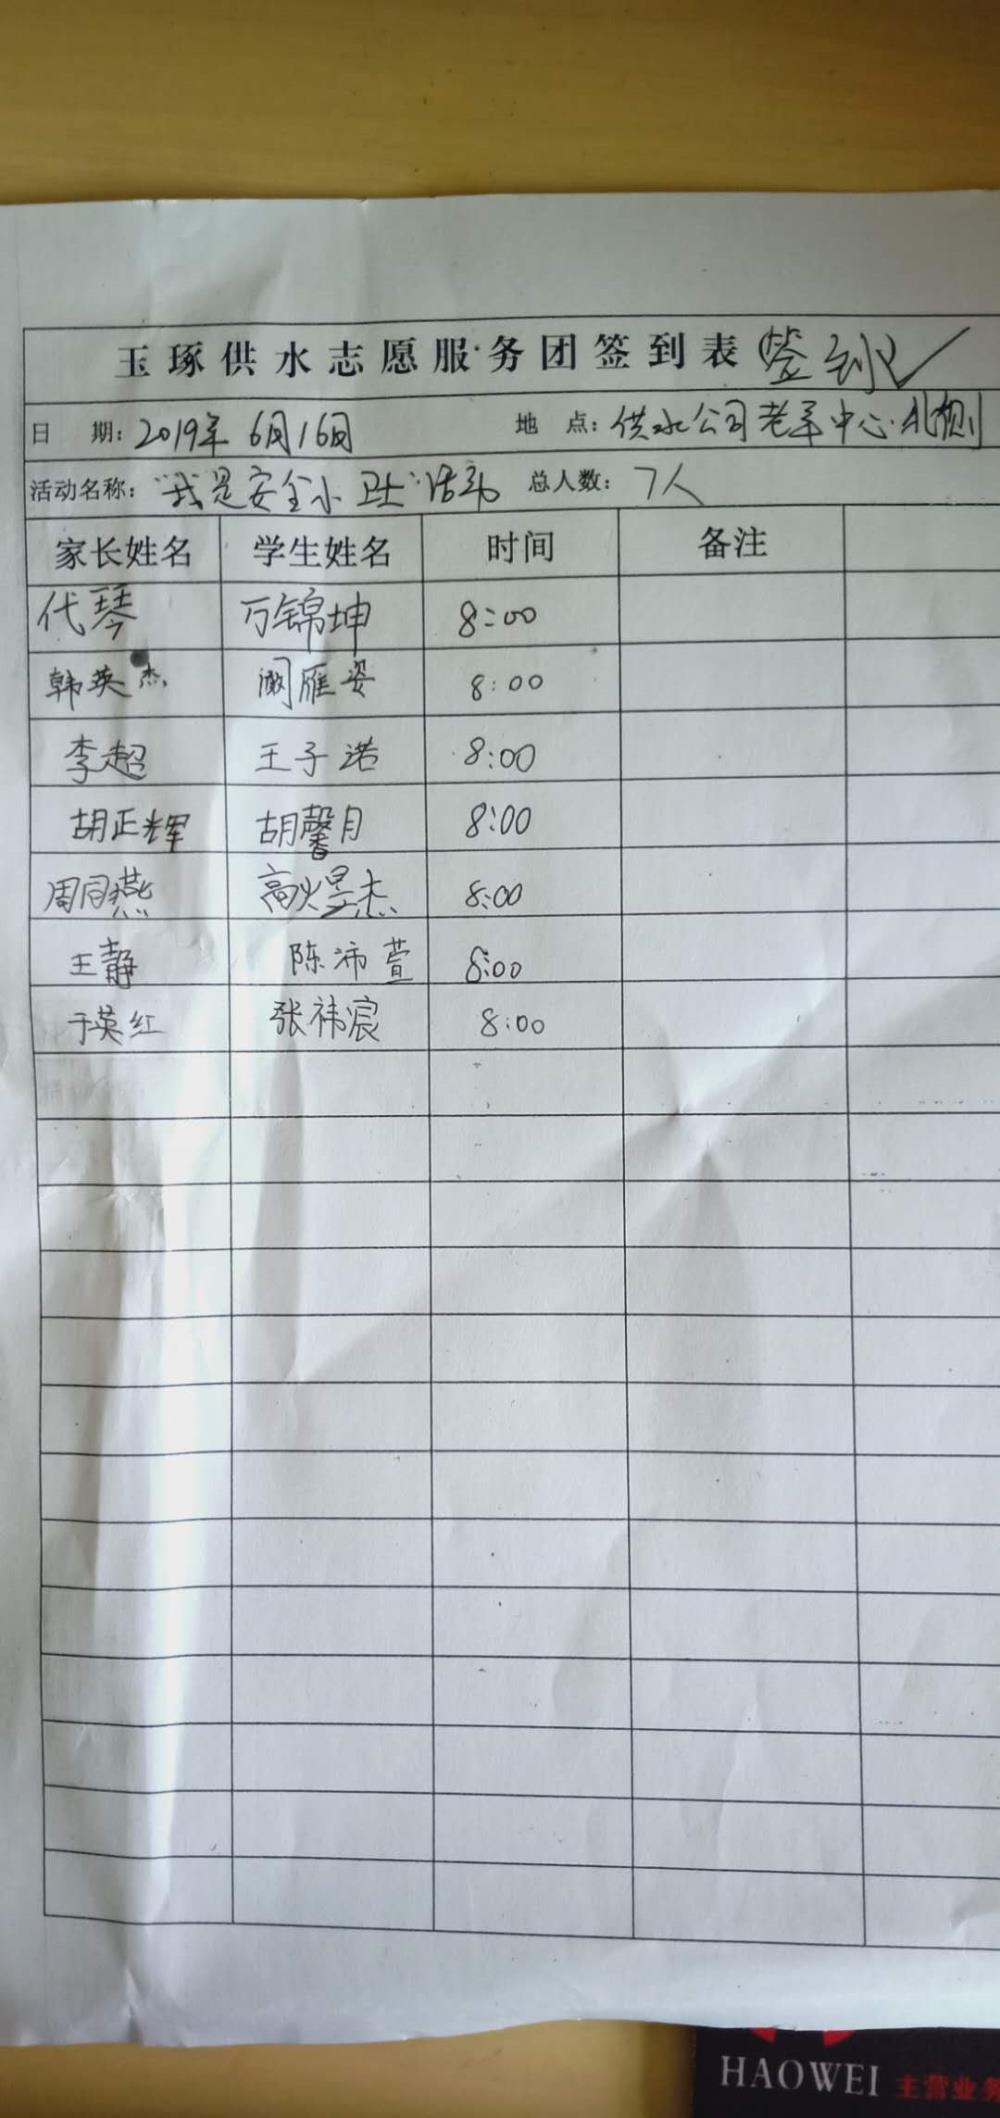 玉琢供水志愿服务团签到表 签到
日 期: 2019年6月16日 地 点: 供水公司老年中心北侧
活动名称: "我是安全小卫士"活动 总人数: 7人
家长姓名 学生姓名 时间 备注
代琴 万锦坤 8:00
韩英杰 阚雁姿 8:00
李超 王子诺 8:00
胡正辉 胡馨月 8:00
周同燕 高煜杰 8:00
王静 陈沛萱 8:00
于英红 张祎宸 8:00
HAOWEI 主营业务